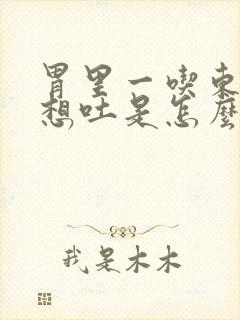 胃里一喫東
想吐是怎麼
我是木木